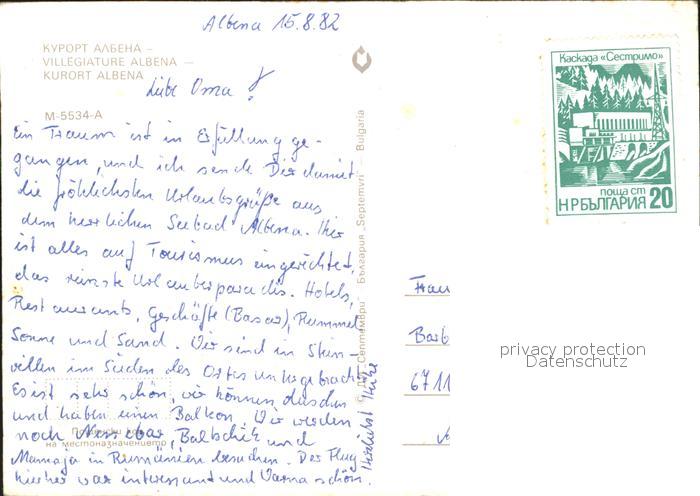 Albena 15.8.82
КУРОРТ АЛБЕНА –
VILLEGIATURE ALBENA –
KURORT ALBENA
Liebe Oma!
М-5534-А
Ein Traum ist in Erfüllung ge-
gangen, und ich sende Dir damit
die fröhlichsten Urlaubsgrüße aus
dem herrlichen Seebad Albena. Hier
ist alles auf Tourismus eingerichtet,
das reinste Urlauberparadis. Hotels,
Restaurants, Geschäfte (Basar), Rummel
Sonne und Sand. Wir sind in
villen im Süden des Ortes untergebracht
Es ist sehr schön, wir können duschen
und haben einen Balkon. Wir werden
noch Nessebar, Baltschik und
Mamaja in Rumänien besuchen. Der Flug
hierher war interessant und Varna schön.
на местоназначението
Септември България „Septemvri" – Bulgaria
Каскада «Сестримо»
поща ст
НР БЪЛГАРИЯ 20
Frau
Barb
6711
privacy protection
Datenschutz